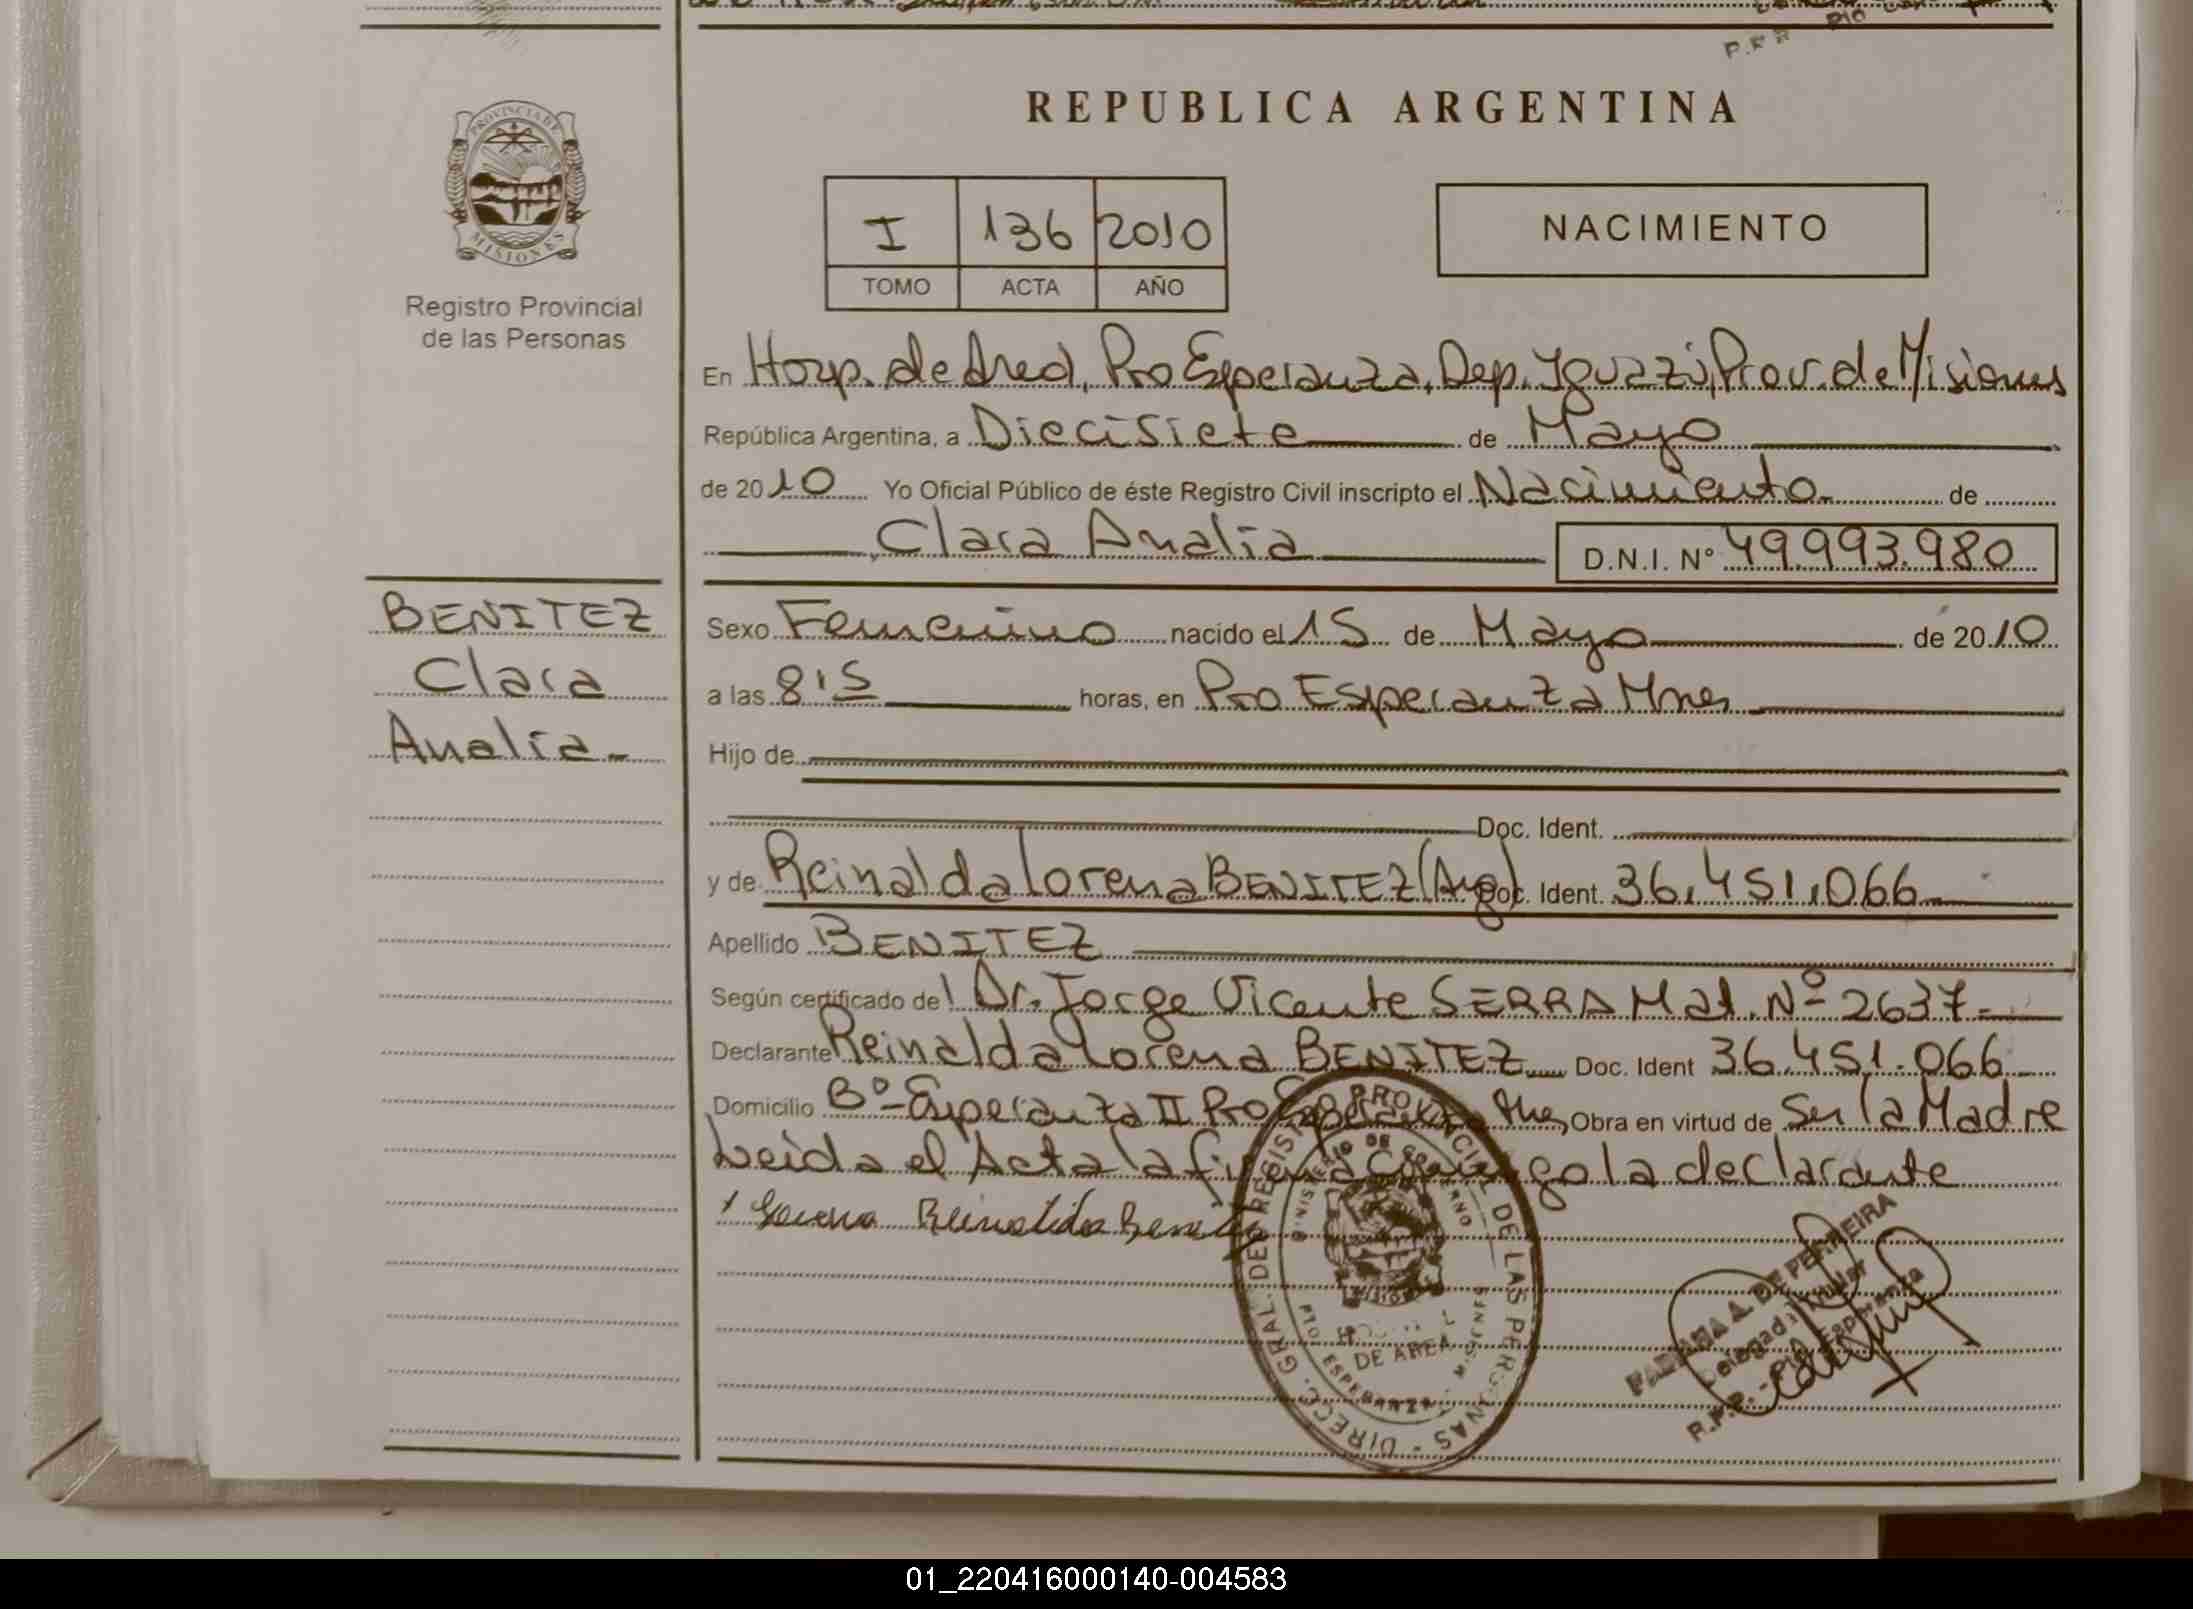 REPUBLICA ARGENTINA
PROVINCIA DE
MISIONES
Registro Provincial
de las Personas
I 136 2010
TOMO ACTA AÑO
NACIMIENTO
En Hosp. de Area, Pto Esperanza, Dep. Iguazú, Prov. de Misiones
República Argentina, a Diecisiete de Mayo
de 2010 Yo Oficial Público de éste Registro Civil inscripto el Nacimiento de
Clara Analia D.N.I. Nº 49.993.980
BENITEZ
Clara
Analia-
Sexo Femenino nacido el 15 de Mayo de 2010
a las 8:15 horas, en Pto Esperanza Mnes
Hijo de
Doc. Ident.
y de Reinalda Lorena BENITEZ (Arg) Doc. Ident. 36.451.066
Apellido BENITEZ
Según certificado del Dr. Jorge Vicente SERRA Mat. Nº 2637-
Declarante Reinalda Lorena BENITEZ Doc. Ident 36.451.066
Domicilio Bº-Esperanza II Pto Esperanza Mnes Obra en virtud de Ser la Madre
Leida el Acta la firma conmigo la declarante
Lorena Reinalda Benitez
DIRECC. GRAL. DEL REGISTRO PROVINCIAL DE LAS PERSONAS
MINISTERIO DE GOBIERNO
DE AREA
PTO ESPERANZA - MISIONES
A. DE FERREIRA
Delegada Titular
R.P.P. - PTO Esperanza
01_220416000140-004583